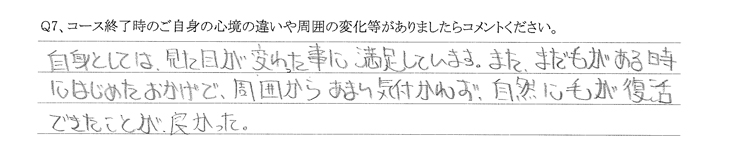 Q7、コース終了時のご自身の心境の違いや周囲の変化等がありましたらコメントください。
自身としては、見た目が変わった事に満足しています。また、まだ毛がある時
にはじめたおかげで、周囲からあまり気付かれず、自然に毛が復活
できたことが、良かった。